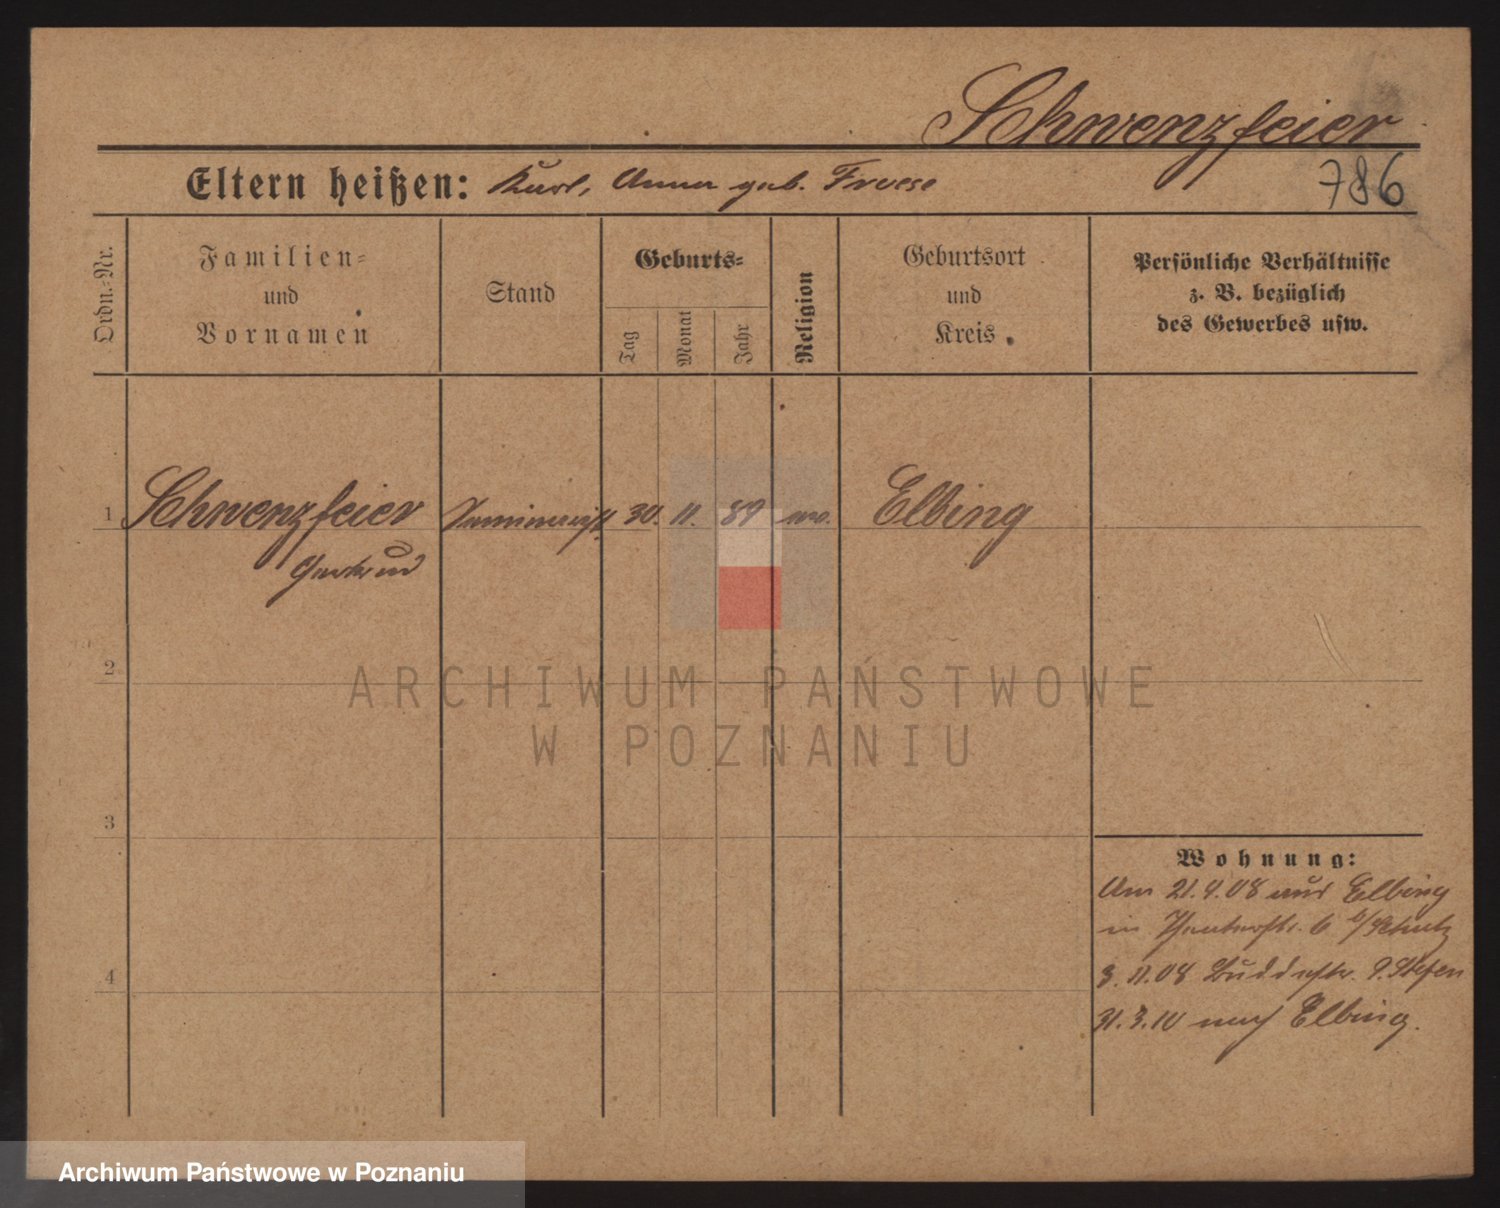 Schwenzfeier
Eltern heißen: Karl, Anna geb. Froese
786
Ordn.-Nr.
Familien-
und
Vornamen
Stand
Geburts-
Tag
Monat
Jahr
Religion
Geburtsort
und
Kreis
Persönliche Verhältnisse
z. B. bezüglich
des Gewerbes usw.
1 Schwenzfeier Seminarist 30. 11. 89 ev. Elbing
Gertrud
2
3
4
Wohnung:
Am 21.4.08 aus Elbing
in 6 b/Schulz
3.11.08 9. Stefen
31.3.10 nach Elbing.
ARCHIWUM PAŃSTWOWE
W POZNANIU
Archiwum Państwowe w Poznaniu